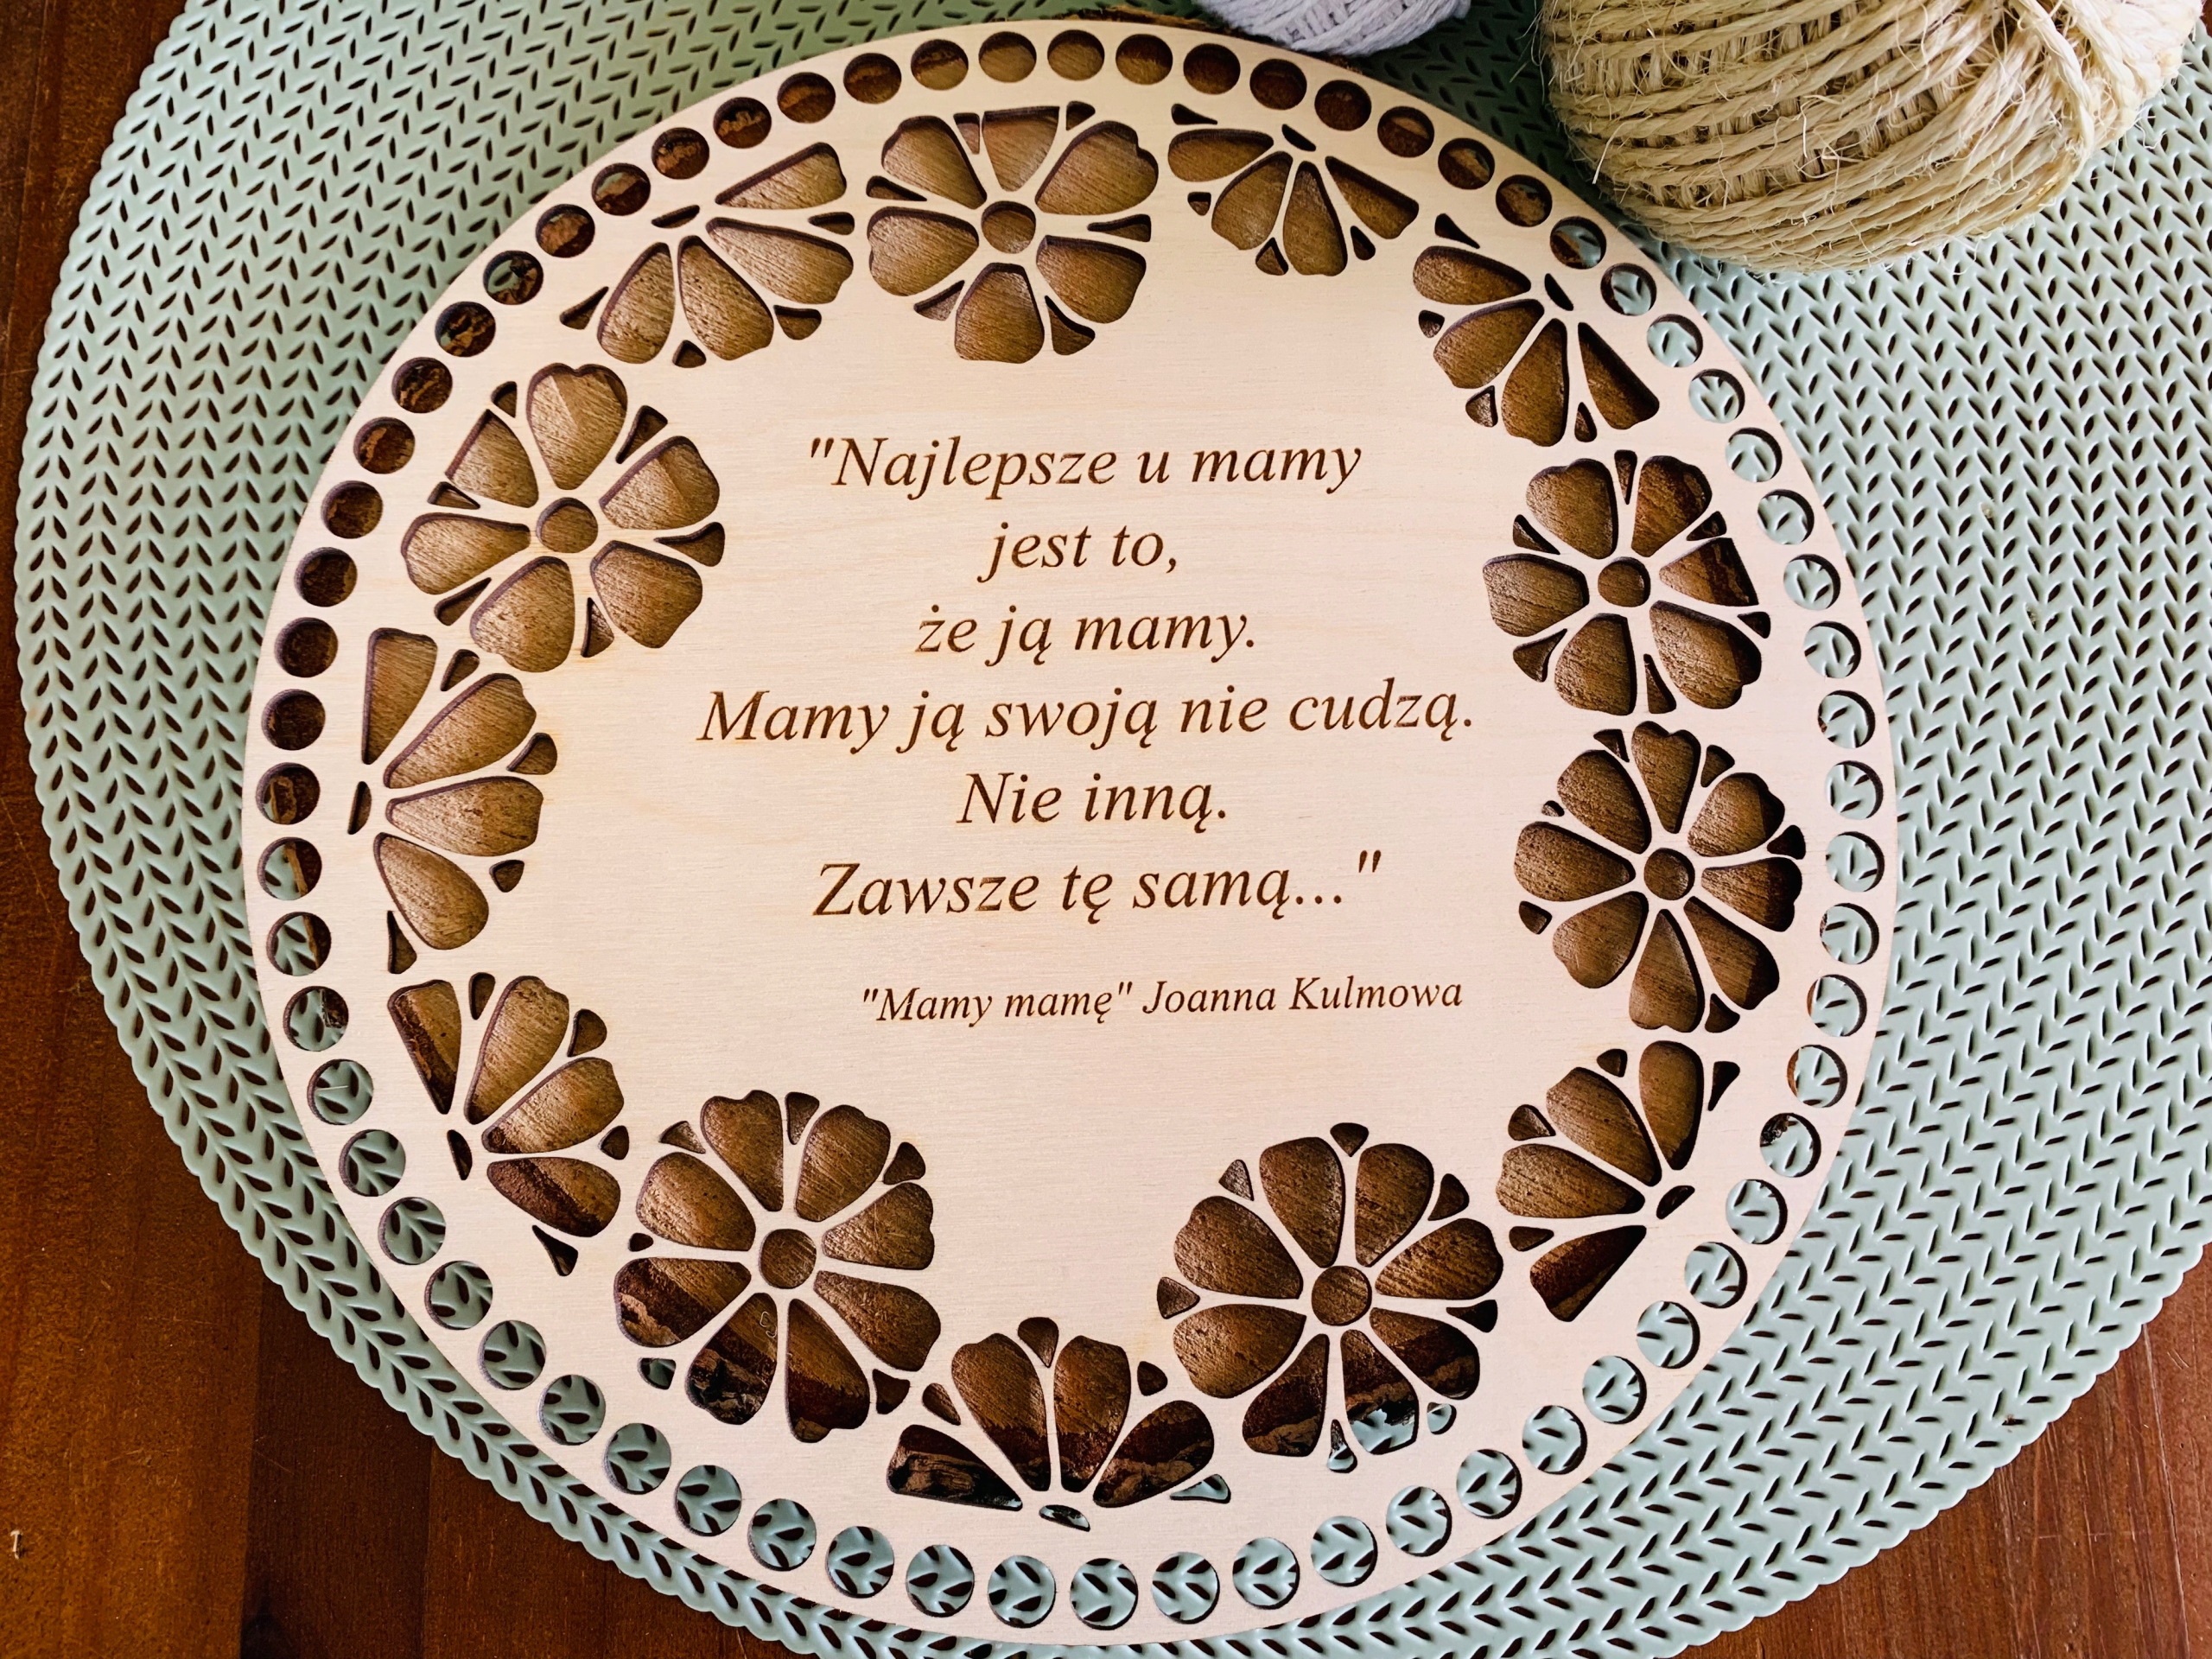 "Najlepsze u mamy
jest to,
że ją mamy.
Mamy ją swoją nie cudzą.
Nie inną.
Zawsze tę samą..."
"Mamy mamę" Joanna Kulmowa